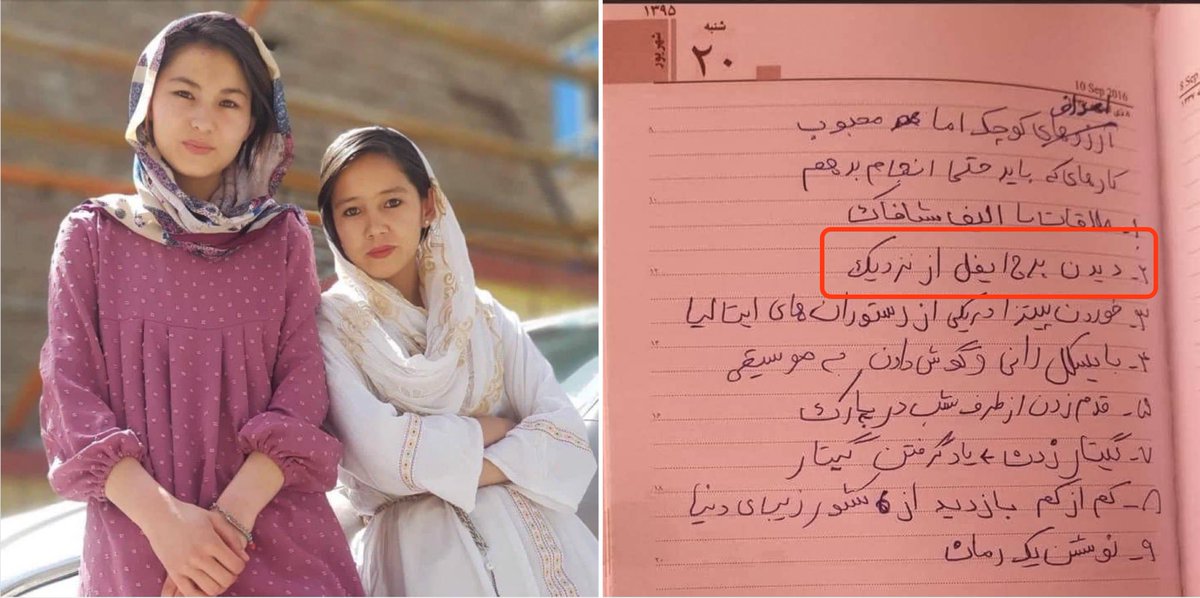 ۱۳۹۵
شهریور
شنبه
۲۰
10 Sep 2016
8 Sep
اهداف
آرزوهای کوچک اما محبوب
کارهای که باید حتما انجام بدهم
۱- ملاقات با الیف شافاک
۲- دیدن برج ایفل از نزدیک
۳- خوردن پیتزا در یکی از رستوران های ایتالیا
۴- بایسکل رانی و گوش دادن به موسیقی
۵- قدم زدن از طرف شب در پارک
۷- گیتار زدن ← یاد گرفتن گیتار
۸- کم از کم بازدید از 6 کشور زیبای دنیا
۹- نوشتن یک رمان